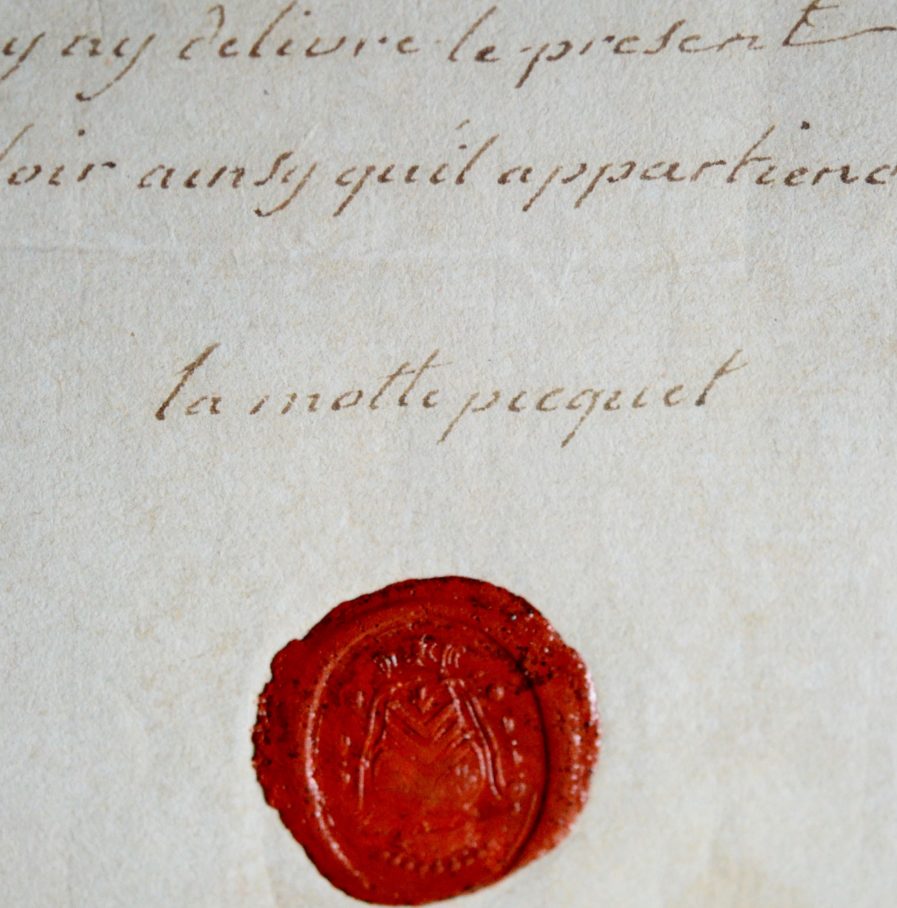 y ay delivre le present
loir ainsy quil appartiend
la motte picquet